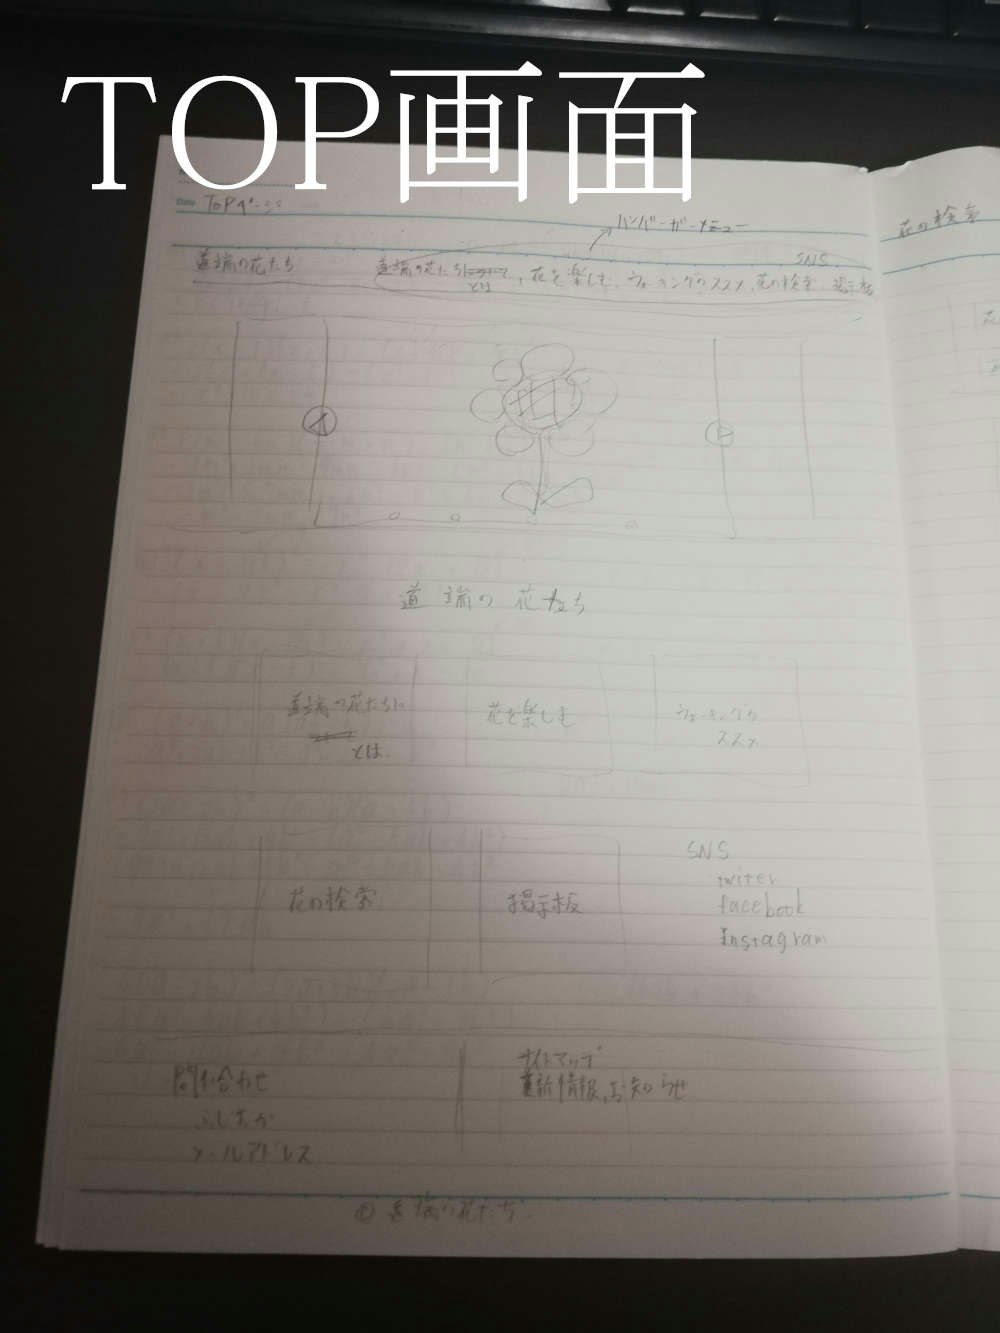 TOP画面
Date TOPページ
ハンバーガーメニュー
SNS
道端の花たち 道端の花たちとは、花を楽しむ、ウォーキングのススメ、花の検索、掲示板
花の検索
道端の花たち
道端の花たちに
とは
花を楽しむ
ウォーキングの
ススメ
花の検索
掲示板
SNS
twiter
facebook
Instagram
問い合わせ
メールアドレス
サイトマップ
最新情報、お知らせ
© 道端の花たち